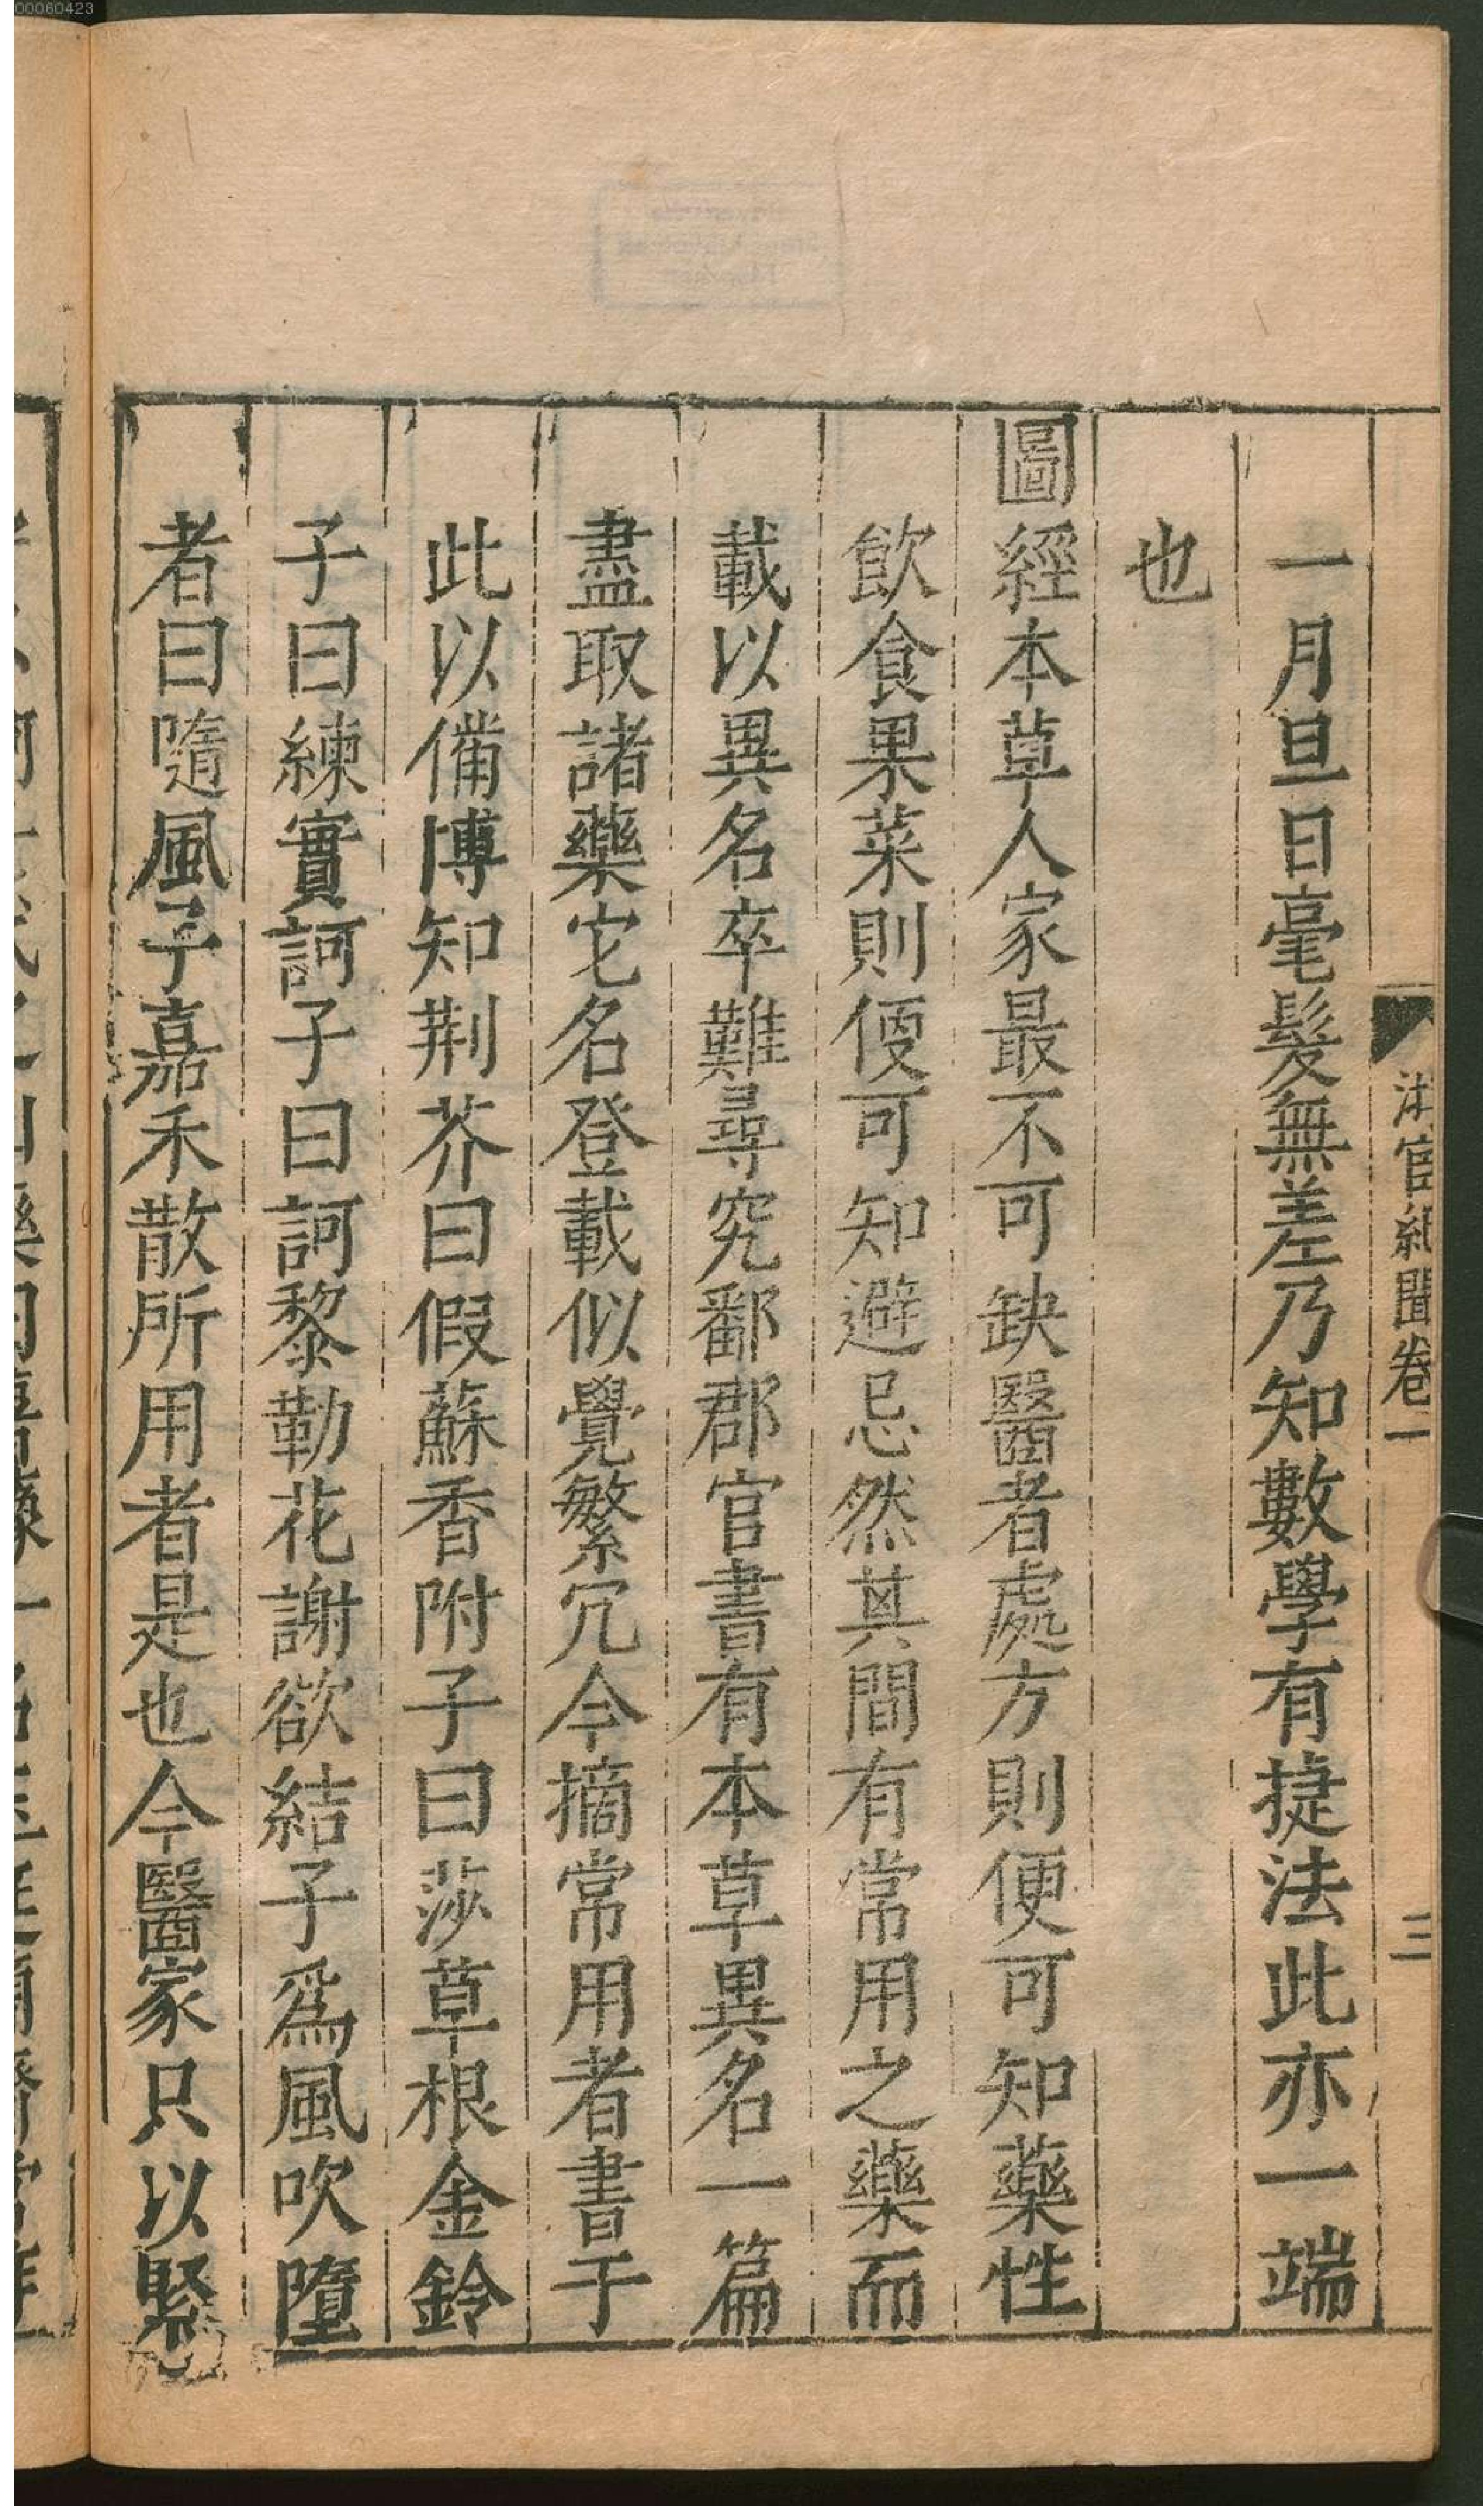 00060423
一月旦日毫髮無差乃知數學有捷法此亦一端
也
圖經本草人家最不可缺醫者處方則便可知藥性
飲食果菜則便可知避忌然其間有常用之藥而
載以異名卒難尋究鄱郡官書有本草異名一篇
盡取諸藥它名登載似覺繁冗今摘常用者書于
此以備博知荆芥曰假蘇香附子曰莎草根金鈴
子曰練實訶子曰訶黎勒花謝欲結子爲風吹墮
者曰隨風子嘉禾散所用者是也今醫家只以緊
官紀聞卷一
三